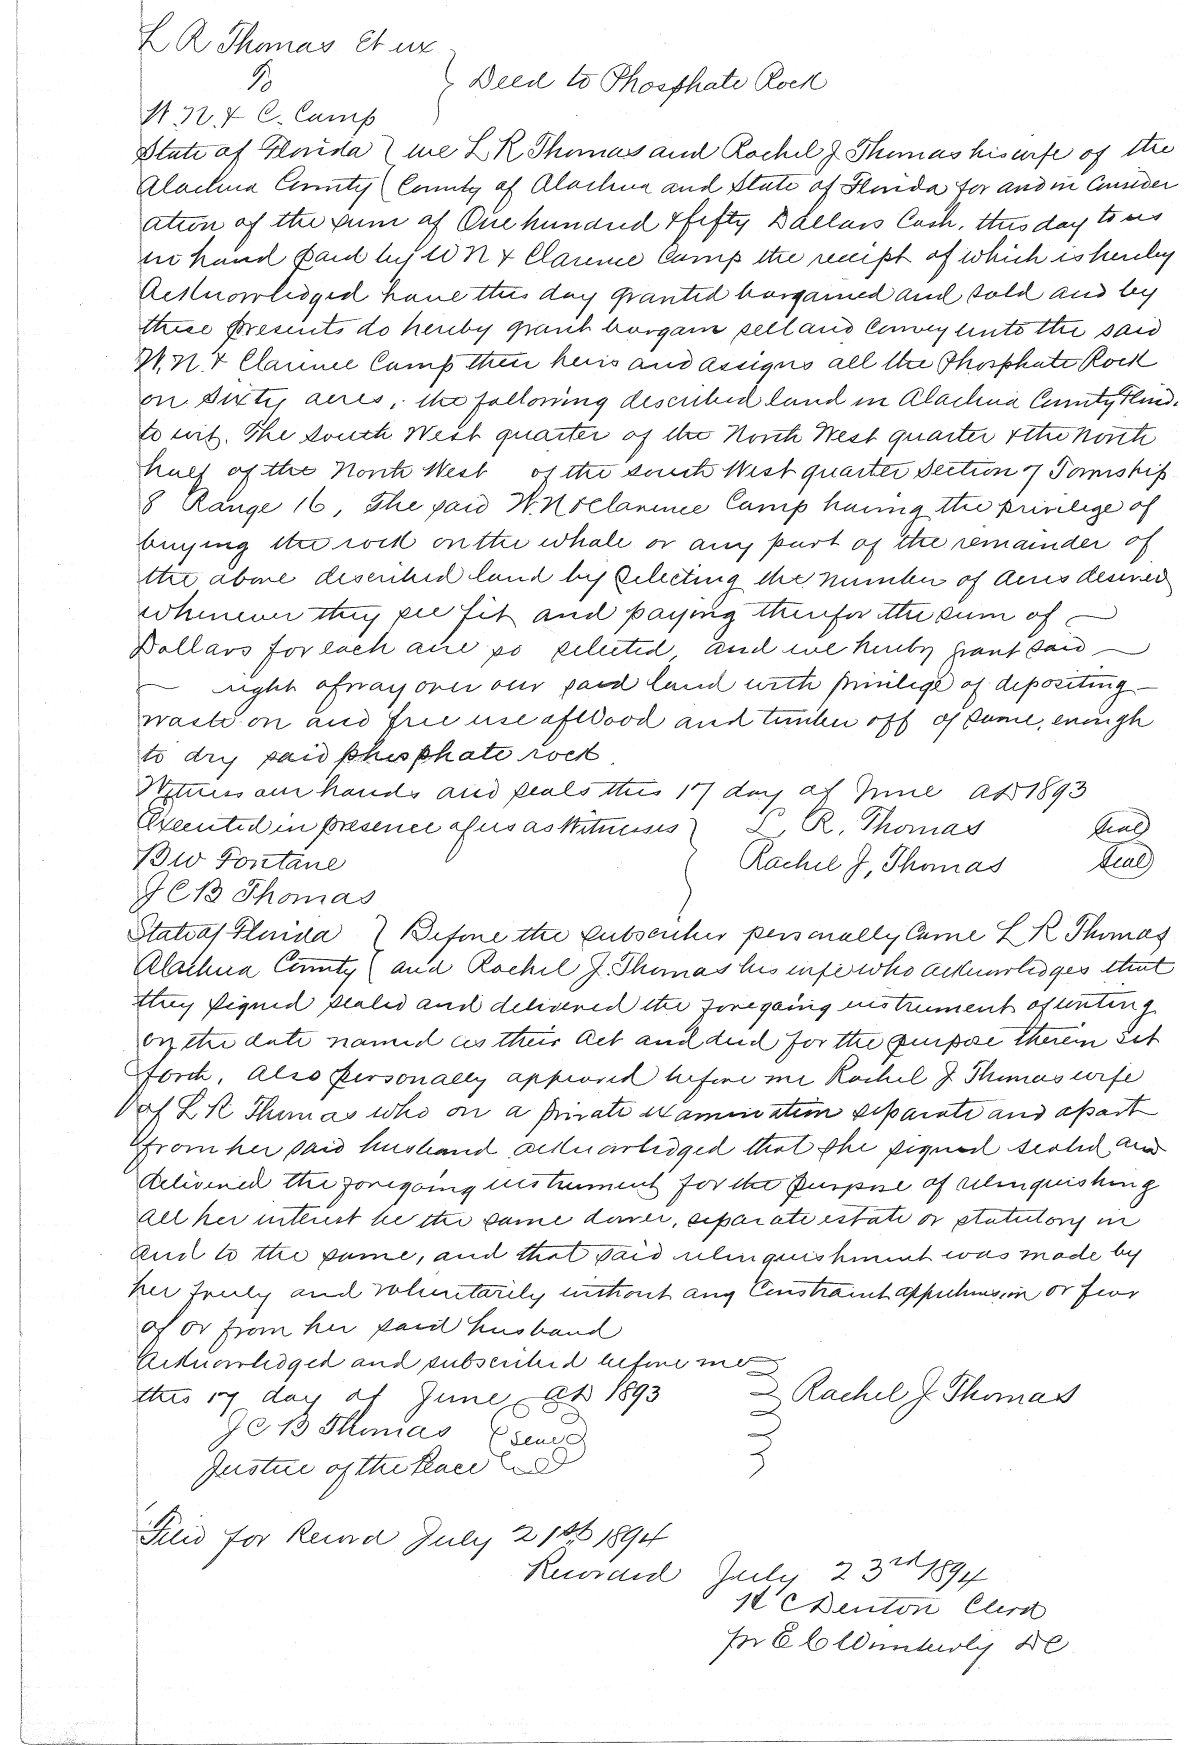 L R Thomas Et ux
To } Deed to Phosphate Rock
W. N. & C. Camp
State of Florida } we L R Thomas and Rachel J Thomas his wife of the
Alachua County ( County of Alachua and State of Florida for and in Consider
ation of the sum of One hundred & fifty Dollars Cash, this day to us
in hand paid by W N & Clarence Camp the receipt of which is hereby
Acknowledged have this day granted bargained and sold and by
these presents do hereby grant bargain sell and Convey unto the said
W. N. & Clarence Camp their heirs and assigns all the Phosphate Rock
on sixty acres, the following described land in Alachua County
to wit. The South West quarter of the North West quarter & the North
half of the North West of the south West quarter Section 7 Township
8 Range 16, The said W. N & Clarence Camp having the privilege of
buying the rock on the whole or any part of the remainder of
the above described land by selecting the number of acres desired
whenever they see fit and paying therefor the sum of —
Dollars for each acre so selected, and we hereby grant said —
— right of way over our said land with privilege of depositing —
waste on and free use of Wood and timber off of same, enough
to dry said phosphate rock.
Witness our hands and seals this 17 day of June AD 1893
Executed in presence of us as Witnesses } L. R. Thomas (Seal)
B W Fontane Rachel J, Thomas (Seal)
J C B Thomas
State of Florida } Before the subscriber personally Came L R Thomas
Alachua County ( and Rachel J. Thomas his wife who acknowledges that
they signed sealed and delivered the foregoing instrument of writing
on the date named as their Act and deed for the purpose therein set
forth, Also personally appeared before me Rachel J Thomas wife
of L R Thomas who on a private examination separate and apart
from her said husband acknowledged that she signed sealed and
delivered the foregoing instrument for the purpose of relinquishing
all her interest be the same dower, separate estate or statutory in
and to the same, and that said relinquishment was made by
her freely and voluntarily without any Constraint apprehension or fear
of or from her said husband
Acknowledged and subscribed before me
this 17 day of June AD 1893 } Rachel J Thomas
J C B Thomas (Seal)
Justice of the Peace
Filed for Record July 21st 1894
Recorded July 23rd 1894
H C Denton Clerk
pr E C Wimberly DC